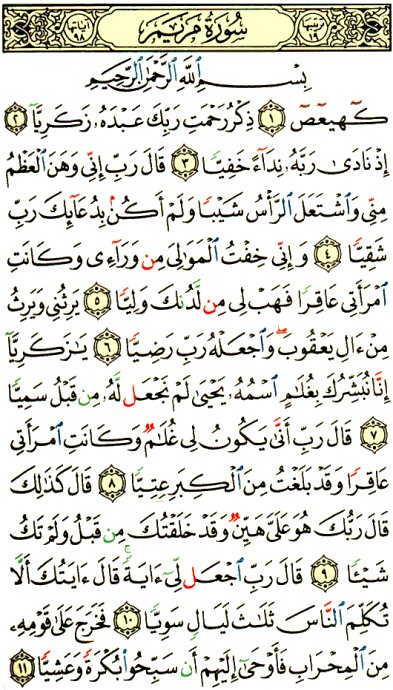 ترتيبها ١٩ سُورَةُ مَرْيَمَ آياتها ٩٨
بِسْمِ اللَّهِ الرَّحْمَٰنِ الرَّحِيمِ
كٓهيعٓصٓ ١ ذِكْرُ رَحْمَتِ رَبِّكَ عَبْدَهُۥ زَكَرِيَّآ ٢
إِذْ نَادَىٰ رَبَّهُۥ نِدَآءً خَفِيًّا ٣ قَالَ رَبِّ إِنِّى وَهَنَ ٱلْعَظْمُ
مِنِّى وَٱشْتَعَلَ ٱلرَّأْسُ شَيْبًا وَلَمْ أَكُنۢ بِدُعَآئِكَ رَبِّ
شَقِيًّا ٤ وَإِنِّى خِفْتُ ٱلْمَوَٰلِىَ مِن وَرَآءِى وَكَانَتِ
ٱمْرَأَتِى عَاقِرًا فَهَبْ لِى مِن لَّدُنكَ وَلِيًّا ٥ يَرِثُنِى وَيَرِثُ
مِنْ ءَالِ يَعْقُوبَ ۖ وَٱجْعَلْهُ رَبِّ رَضِيًّا ٦ يَٰزَكَرِيَّآ
إِنَّا نُبَشِّرُكَ بِغُلَٰمٍ ٱسْمُهُۥ يَحْيَىٰ لَمْ نَجْعَل لَّهُۥ مِن قَبْلُ سَمِيًّا
٧ قَالَ رَبِّ أَنَّىٰ يَكُونُ لِى غُلَٰمٌ وَكَانَتِ ٱمْرَأَتِى
عَاقِرًا وَقَدْ بَلَغْتُ مِنَ ٱلْكِبَرِ عِتِيًّا ٨ قَالَ كَذَٰلِكَ
قَالَ رَبُّكَ هُوَ عَلَىَّ هَيِّنٌ وَقَدْ خَلَقْتُكَ مِن قَبْلُ وَلَمْ تَكُ
شَيْـًٔا ٩ قَالَ رَبِّ ٱجْعَل لِّىٓ ءَايَةً ۚ قَالَ ءَايَتُكَ أَلَّا
تُكَلِّمَ ٱلنَّاسَ ثَلَٰثَ لَيَالٍ سَوِيًّا ١٠ فَخَرَجَ عَلَىٰ قَوْمِهِۦ
مِنَ ٱلْمِحْرَابِ فَأَوْحَىٰٓ إِلَيْهِمْ أَن سَبِّحُوا۟ بُكْرَةً وَعَشِيًّا ١١